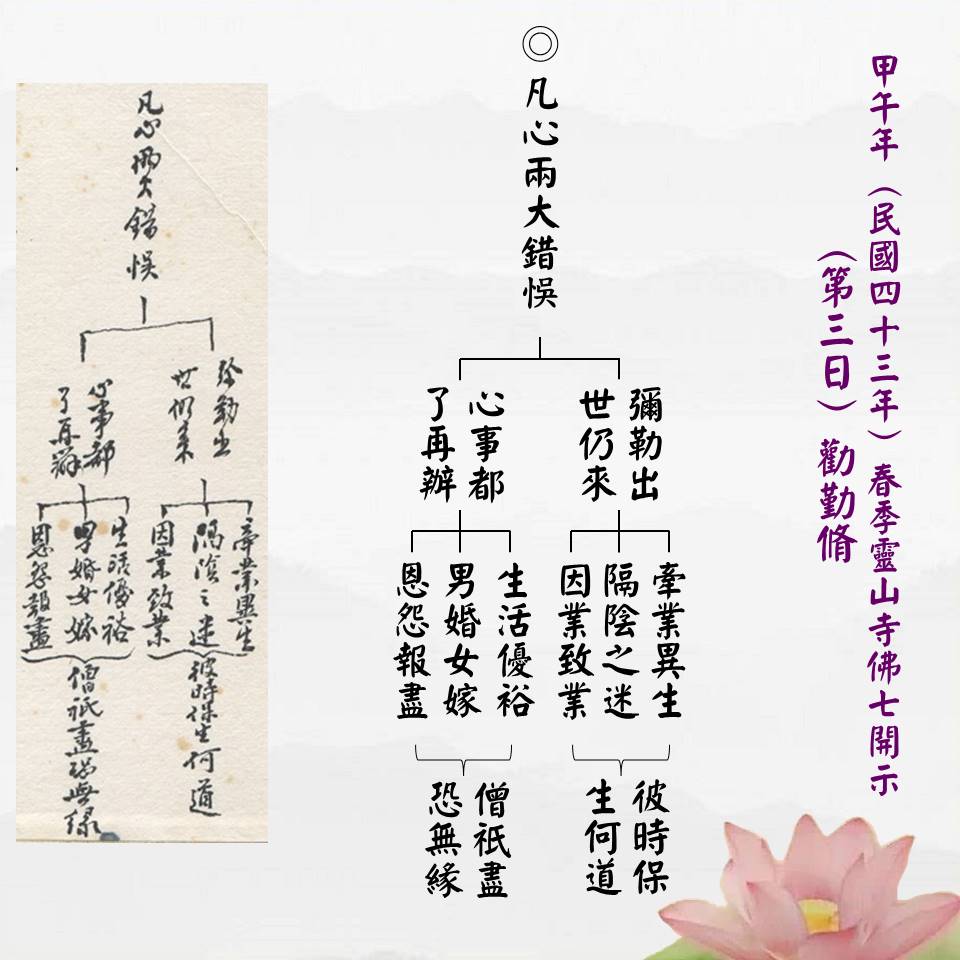 甲午年（民國四十三年）春季靈山寺佛七開示
（第三日）勸勤脩
◎凡心兩大錯悞
彌勒出
世仍來
牽業異生
隔陰之迷
因業致業
彼時保
生何道
心事都
了再辦
生活優裕
男婚女嫁
恩怨報盡
僧祇盡
恐無緣
凡心兩大錯悞
弥勒出
世仍来
牽業異生
隔陰之迷
因業致業
彼時保生何道
心事都
了再辦
生活優裕
男婚女嫁
恩怨報盡
僧祇盡恐無緣